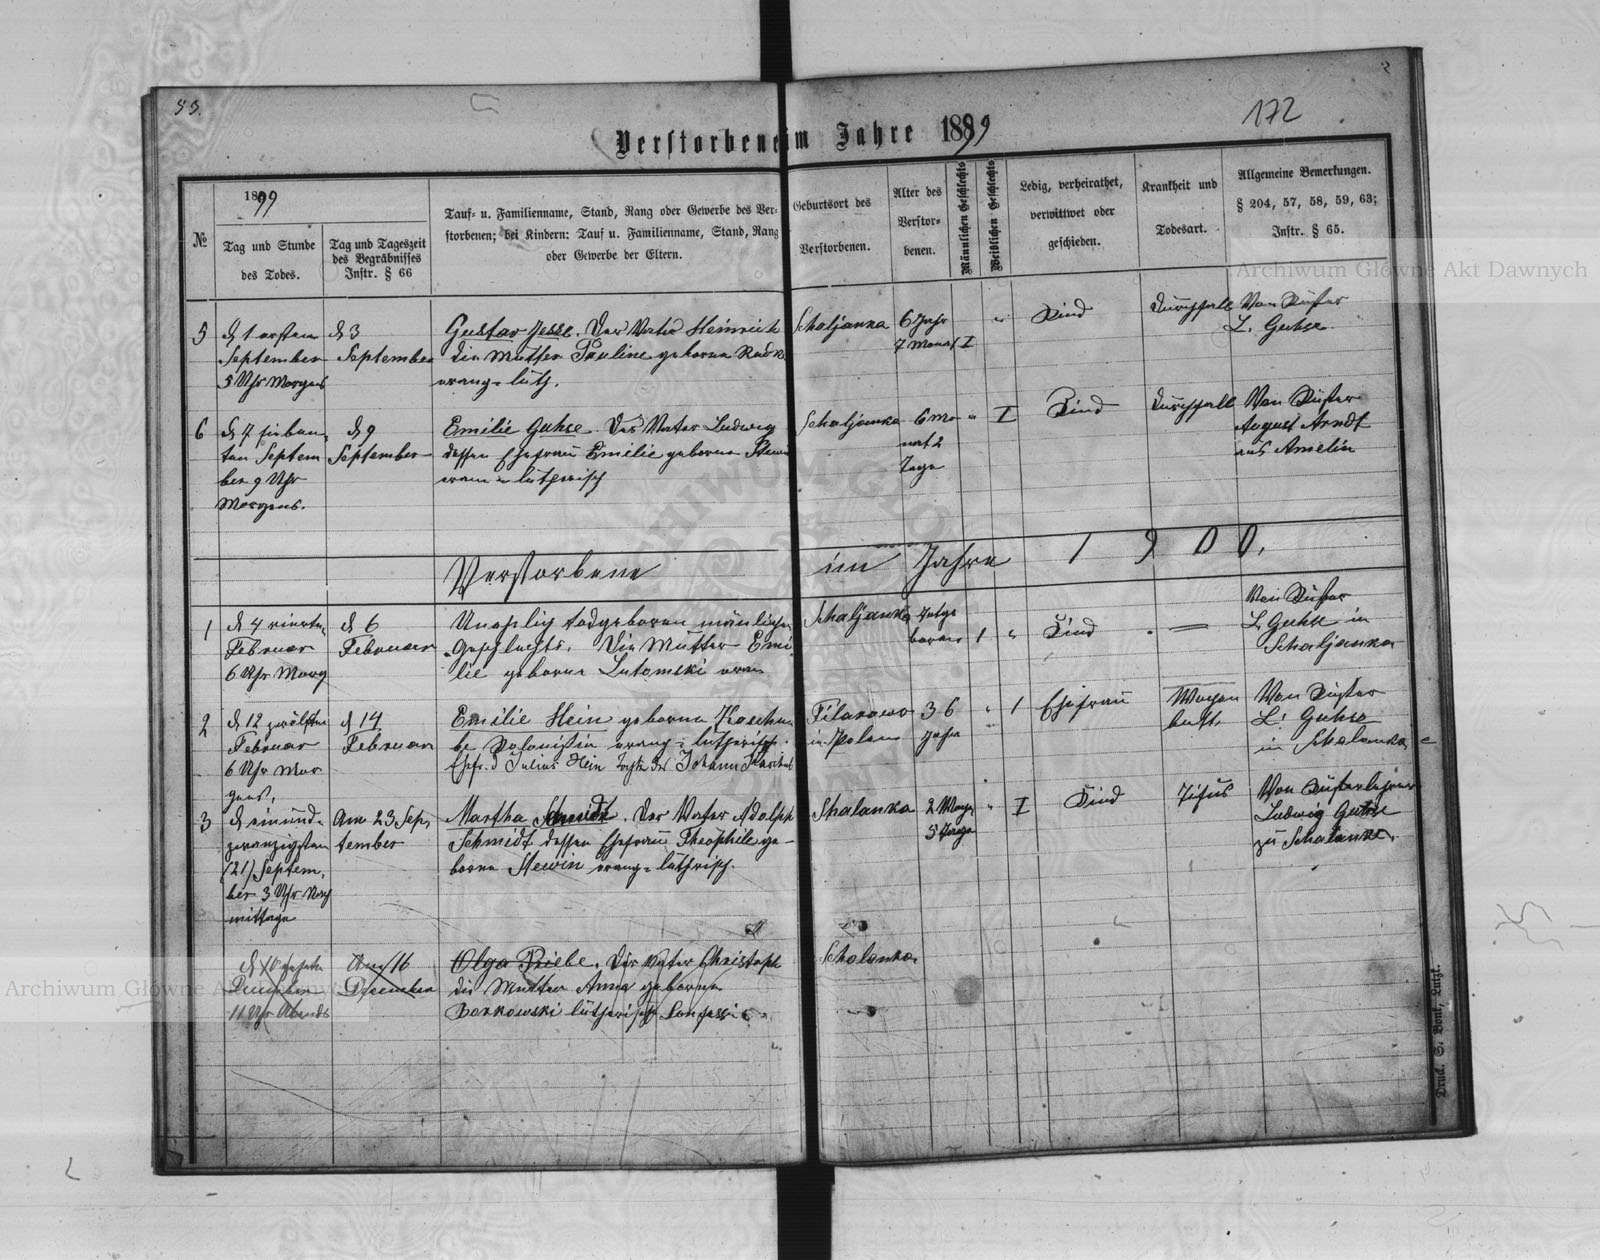 53.
172
2
Verstorbene im Jahre 1899
1899
№
Tag und Stunde
des Todes.
Tag und Tageszeit
des Begräbnisses
Instr. § 66
Tauf- u. Familienname, Stand, Rang oder Gewerbe des Ver-
storbenen; bei Kindern: Tauf u. Familienname, Stand, Rang
oder Gewerbe der Eltern.
Geburtsort des
Verstorbenen.
Alter des
Verstor-
benen.
Männlichen Geschlechts
Weiblichen Geschlechts
Ledig, verheirathet,
verwittwet oder
geschieden.
Krankheit und
Todesart.
Allgemeine Bemerkungen.
§ 204, 57, 58, 59, 63;
Instr. § 65.
Archiwum Główne Akt Dawnych
5
d 1 ersten
September
5 Uhr Morgens
d 3
September
Gustav Jesse. Der Vater Heinrich
die Mutter Pauline geborne
evang=luth.
Schaljanka
6 Jahr
7 Monat I
Kind
Durchfall
Von Küster
L. Guhse
6
d 7 sieben-
ten Septem
ber 9 Uhr
Morgens.
d 9
September
Emilie Guhse. Der Vater Ludwig
dessen Ehefrau Emilie geborne
lutherisch
Schaljanka
6 Mo
nat 2
Tage
I
Kind
Durchfall
Von Küster
August Arndt
aus Amelin
Verstorbene im Jahre 1900.
1
d 4 vierten
Februar
6 Uhr Morg
d 6
Februar
Unehlig todgeboren mänlichen
Geschlechts. Die Mutter Emi
lie geborne Lutomski
Schaljanka
Totge
boren
1
Kind
Von Küster
L Guhse in
Schaljanka
2
d 12 zwölften
Februar
6 Uhr Mor
gens,
d 14
Februar
Emilie Hein geborne
be Kolonistin evang=lutherisch.
Ehefr. d Julius Hein Tochter des Johann
in Polen
36
Jahr
1
Ehefrau
Wochen
bett.
Von Küster
L. Guhse
in Schalanka
3
d einund-
zwanzigsten
(21) Septem,
ber 3 Uhr Nach
mittage
Am 23 Sep,
tember
Martha Schmidt. Der Vater Adolph
Schmidt dessen Ehefrau Theophile ge-
borne Stewin evang=luthrisch.
Schalanka
2 Woche
5 Tage
I
Kind
Tifus
Von Küsterlehrer
Ludwig Guhse
zu Schalanke.
Dezember
11 Uhr Abends
Am 16
Dezember
Olga Priebe. Der Vater Christoph
die Mutter Anna geborne
Borkowski lutherisch
Schalanka.
Archiwum Główne Akt Dawnych